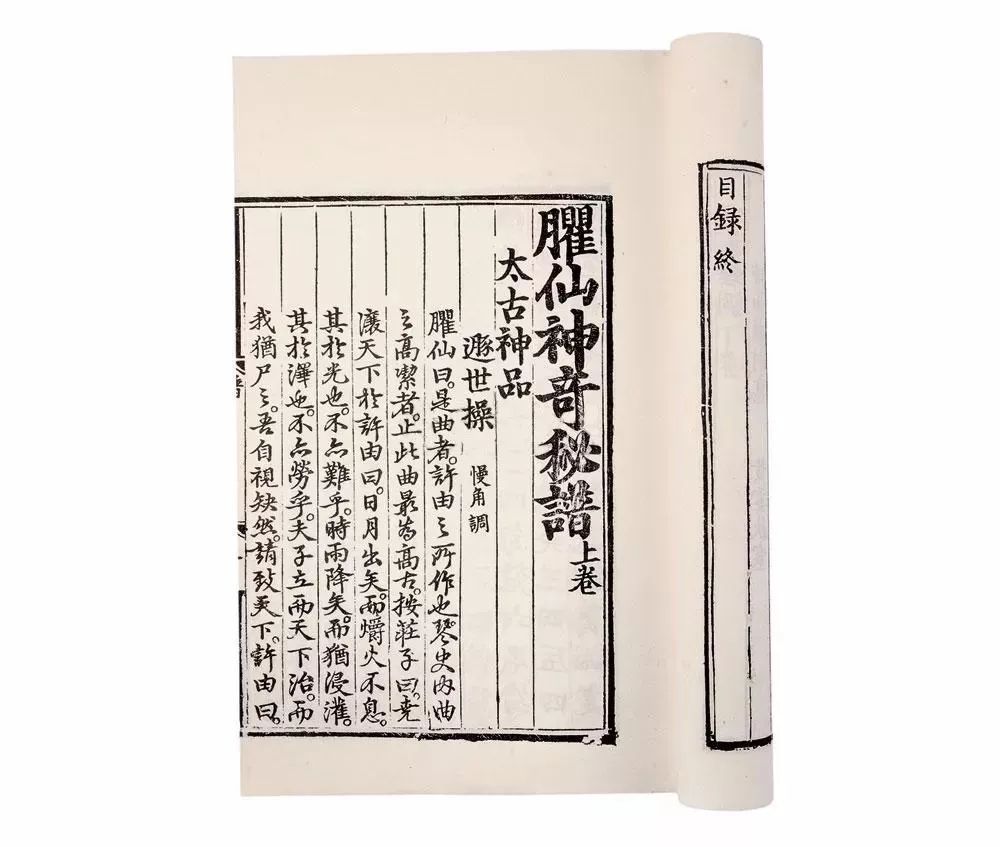 目録終
臞仙神奇秘譜上卷
太古神品
遯世操 慢角調
臞仙曰。是曲者。許由之所作也。琴史內曲
之高潔者。止此曲最為高古。按莊子曰。堯
讓天下於許由曰。日月出矣。而爝火不息。
其於光也。不亦難乎。時雨降矣。而猶浸灌。
其於澤也。不亦勞乎。夫子立而天下治。而
我猶尸之。吾自視缺然。請致天下。許由曰。
譜